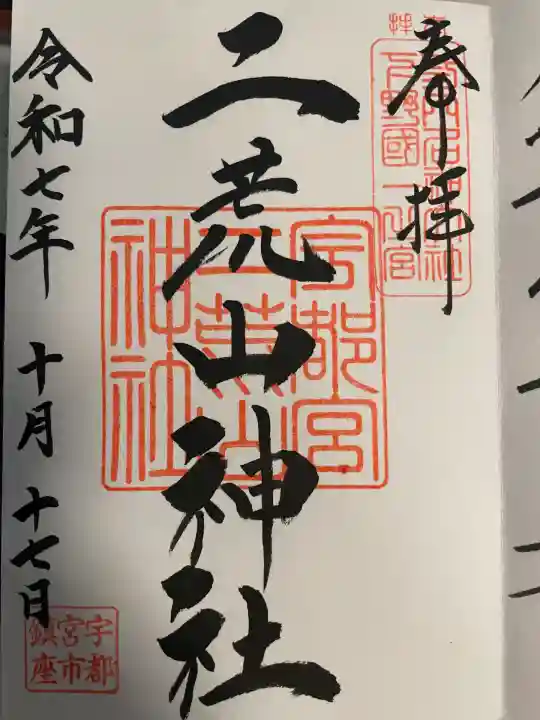 奉拝
下野國一之宮
二荒山神社
宇都宮
二荒山
神社
令和七年 十月 十七日
宇都宮市鎮座